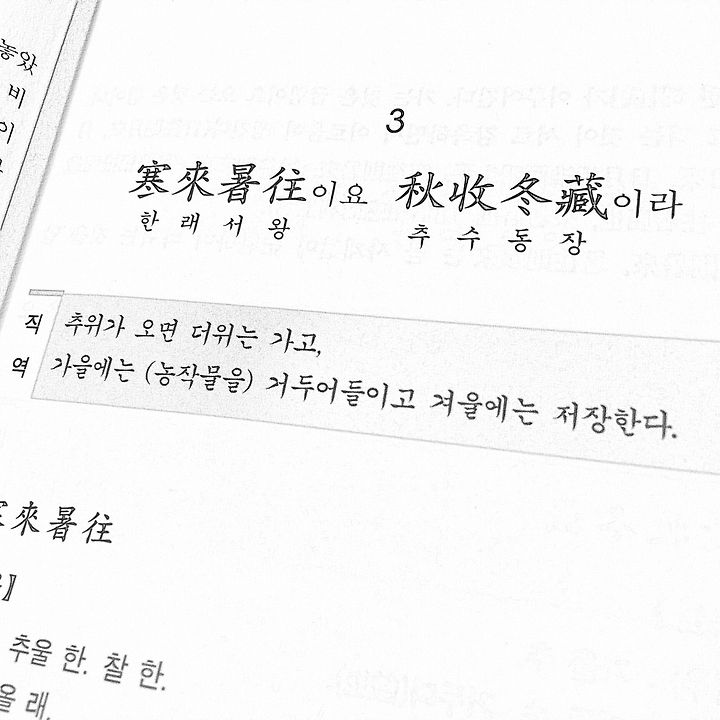 놓았
비
이
3
寒來暑往이요 秋收冬藏이라
한 래 서 왕 추 수 동 장
직역
추위가 오면 더위는 가고,
가을에는 (농작물을) 거두어들이고 겨울에는 저장한다.
來暑往
추울 한. 찰 한.
올 래.